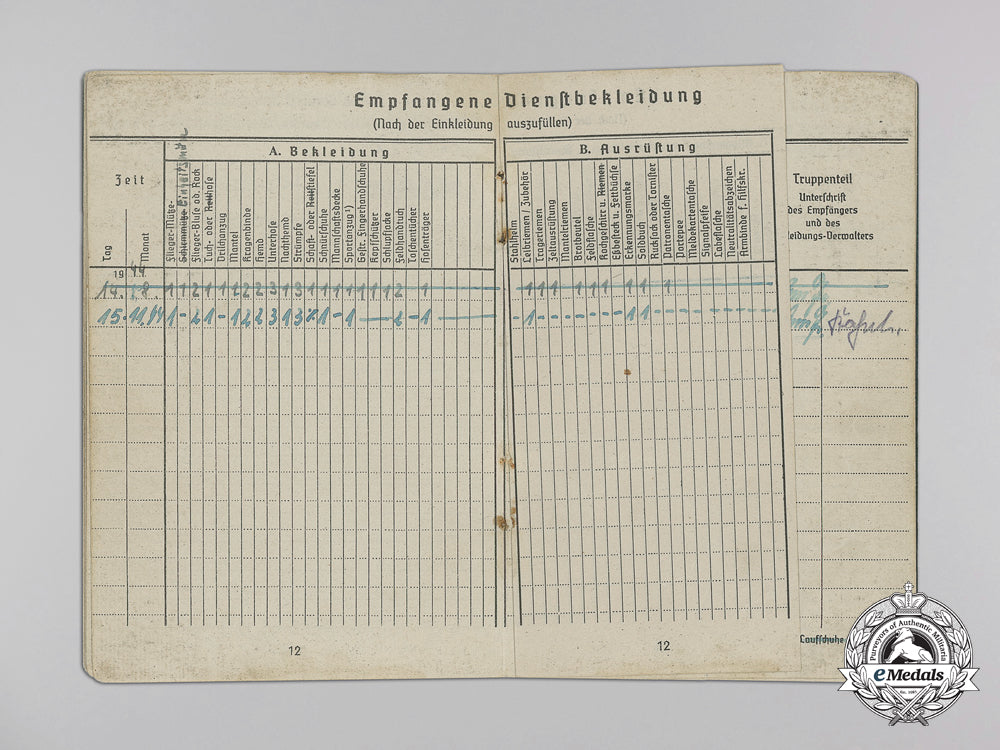 Empfangene Dienstbekleidung
(Nach der Einkleidung auszufüllen)
A. Bekleidung
B. Ausrüstung
Zeit
Tag
Monat
Flieger-Mütze
Schirmmütze
Flieger-Bluse od. Rock
Tuch- oder Reithose
Drillichanzug
Mantel
Kragenbinde
Hemd
Unterhose
Nachthemd
Strümpfe
Schaft- oder Reitstiefel
Schnürschuhe
Mannschaftsdecke
Sportanzug¹)
Gestr. Fingerhandschuhe
Kopfschützer
Schlupfjacke
Feldhandtuch
Taschentücher
Hosenträger
Stahlhelm
Leibriemen / Zubehör
Trageriemen
Zeltausrüstung
Mantelriemen
Brotbeutel
Feldflasche
Kochgeschirr u. Riemen
Eßbesteck u. Fettbüchse
Erkennungsmarke
Soldbuch
Rucksack oder Tornister
Patronentasche
Portepee
Meldekartentasche
Signalpfeife
Labeflasche
Neutralitätsabzeichen
Armbinde f. Hilfskr.
Truppenteil
Unterschrift
des Empfängers
und des
leidungs-Verwalters
1944
14. 8. 1 1 2 1 1 1 2 2 3 1 3 1 1 1 1 1 1 1 2 1 1 1 1 1 1 1 1 1 1
15. 11.44 1 - 2 1 - 1 2 2 3 1 3 1 - 1 2 - 1 - 1 - - - - - - 1 1 - - - -
12
12
Laufschuhe
Purveyors of Authentic Militaria
eMedals